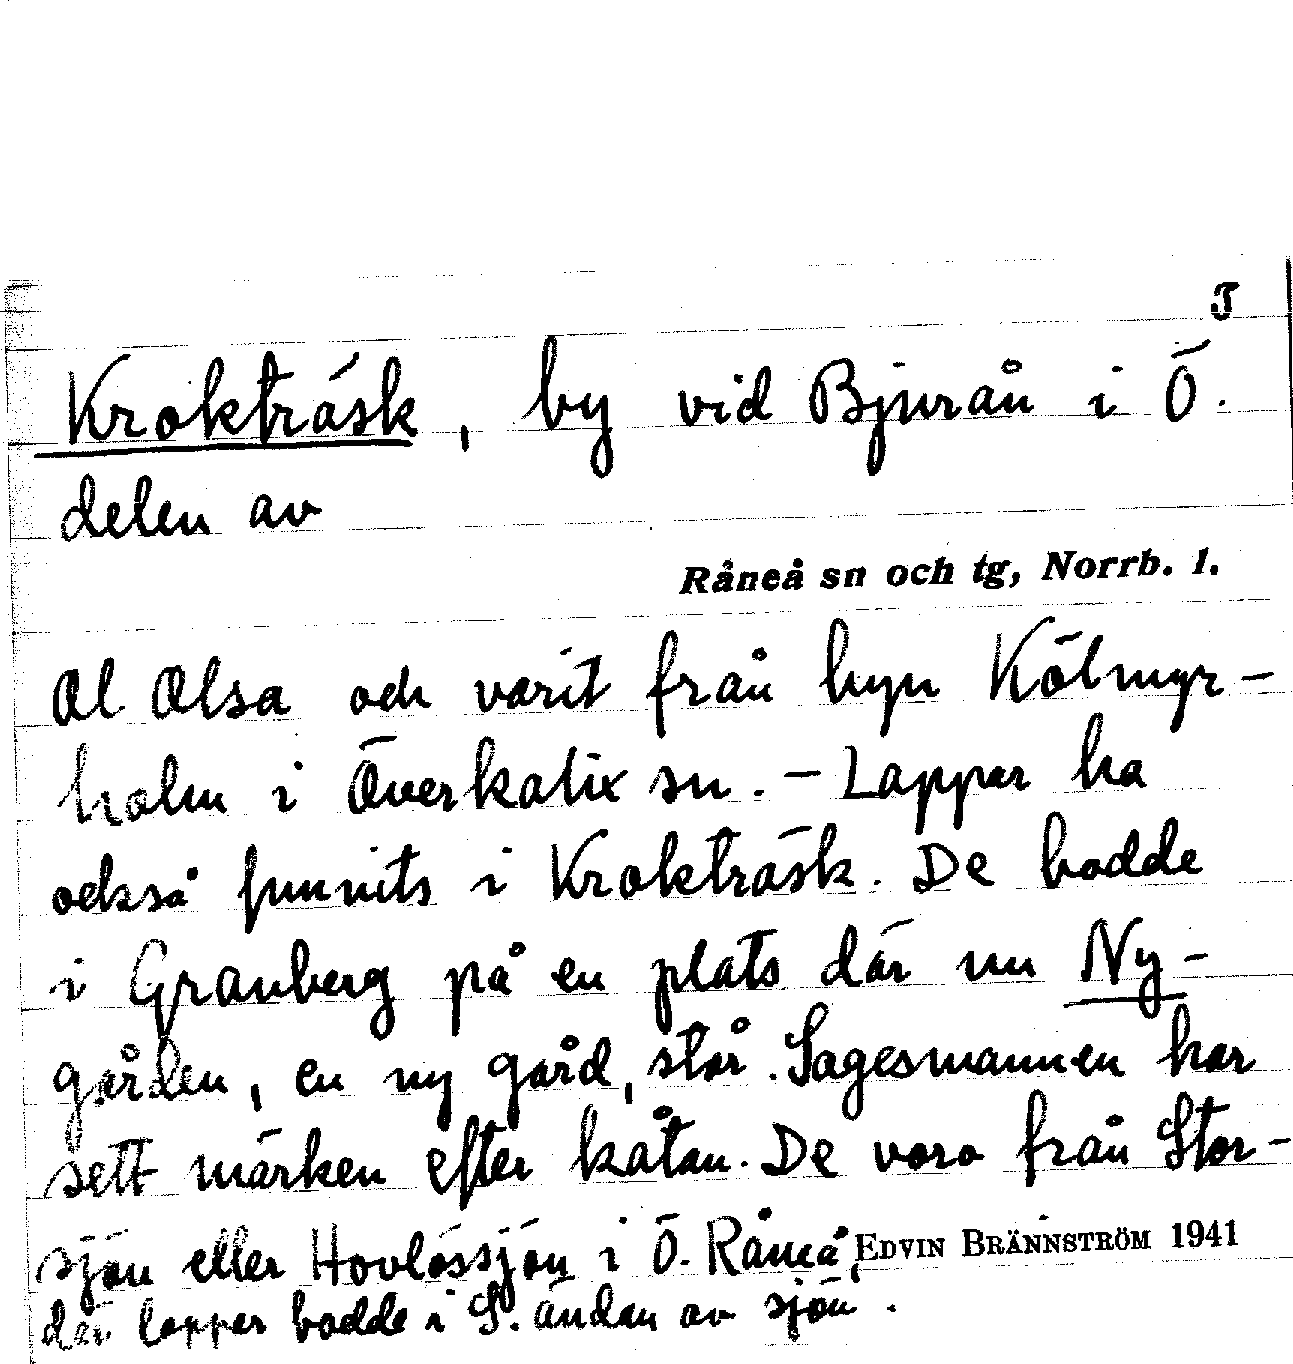 J
Krokträsk, by vid Bjurån i Ö.
delen av
Råneå sn och tg, Norrb. l.
Ol Olsa och varit från byn Kölmyr-
holm i Överkalix sn. - Lappar ha
också funnits i Krokträsk. De bodde
i Granberg på en plats där nu Ny-
gården, en ny gård, står. Sagesmannen har
sett märken efter kåtan. De voro från Stor-
sjön eller Hovlössjön i Ö. Råneå,
EDVIN BRÄNNSTRÖM 1941
där lappar bodde i S. ändan av sjön.